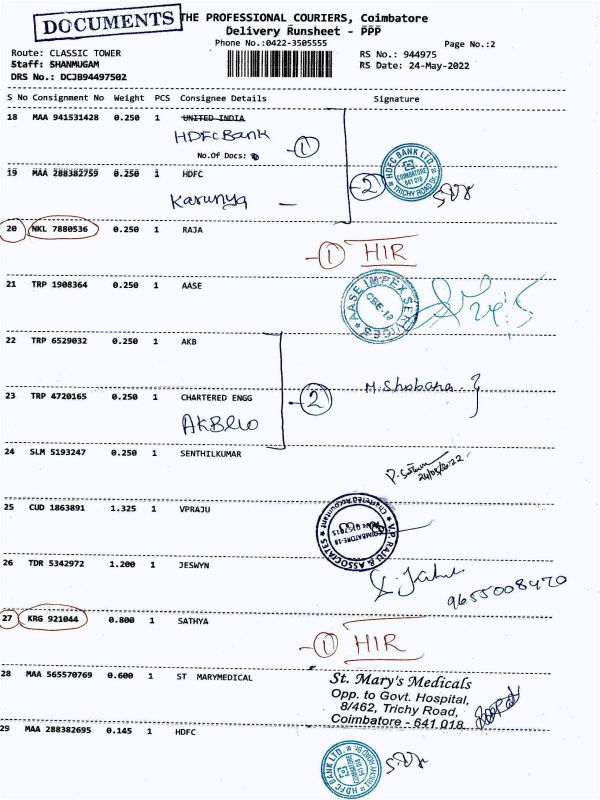 DOCUMENTS
THE PROFESSIONAL COURIERS, Coimbatore
Delivery Runsheet - PPP
Phone No.:0422-3505555
Page No.:2
Route: CLASSIC TOWER
Staff: SHANMUGAM
DRS No.: DCJB94497502
RS No.: 944975
RS Date: 24-May-2022
S No Consignment No Weight PCS Consignee Details Signature
18 MAA 941531428 0.250 1 UNITED INDIA
HDFC Bank
No.Of Docs:
1
19 MAA 288382759 0.250 1 HDFC
Karunya
2
HDFC BANK LTD.
COIMBATORE
641 018
TRICHY ROAD
20 NKL 7880536 0.250 1 RAJA
1 HIR
21 TRP 1908364 0.250 1 AASE
AASE IMPEX SERVICES
CBE-18
22 TRP 6529032 0.250 1 AKB
2
M. Shobana
23 TRP 4720165 0.250 1 CHARTERED ENGG
24 SLM 5193247 0.250 1 SENTHILKUMAR
25 CUD 1863891 1.325 1 VPRAJU
V.P. RAJU & ASSOCIATES
Chartered Accountant
COIMBATORE-18
26 TDR 5342972 1.200 1 JESWYN
9655008470
27 KRG 921044 0.800 1 SATHYA
1 HIR
28 MAA 565570769 0.600 1 ST MARYMEDICAL
St. Mary's Medicals
Opp. to Govt. Hospital,
8/462, Trichy Road,
Coimbatore - 641 018
29 MAA 288382695 0.145 1 HDFC
HDFC BANK LTD.